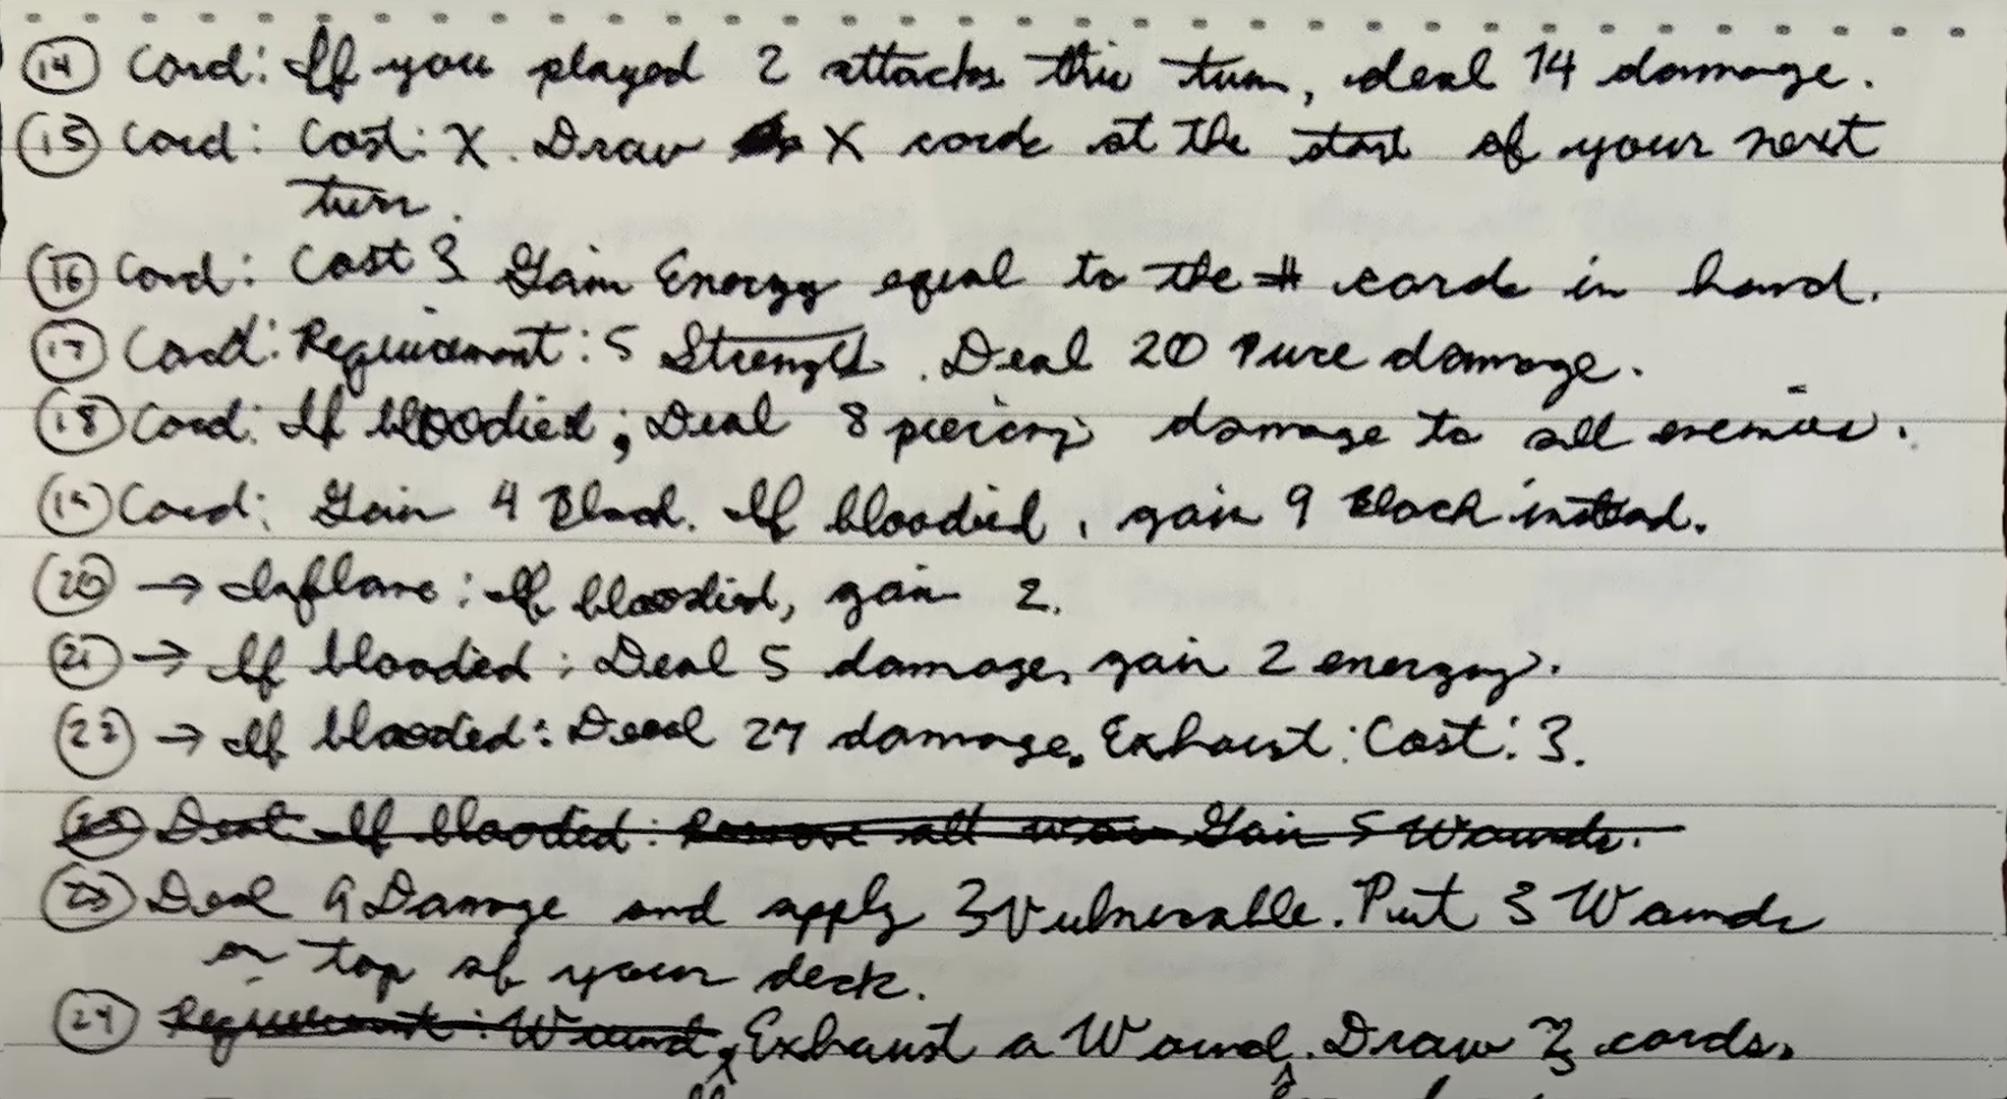 14 Card: If you played 2 attacks this turn, deal 14 damage.
15 Card: Cost: X. Draw X cards at the start of your next
turn.
16 Card: Cost 3 Gain Energy equal to the # cards in hand.
17 Card: Requirement: 5 Strength. Deal 20 Pure damage.
18 Card: If bloodied; Deal 8 piercing damage to all enemies.
19 Card: Gain 4 Block. If bloodied, gain 9 Block instead.
20 → Inflame: If bloodied, gain 2.
21 → If blooded: Deal 5 damage, gain 2 energy.
22 → If blooded: Deal 27 damage. Exhaust: Cost: 3.
23 If blooded: Remove all Gain 5 Wounds.
23 Deal 9 Damage and apply 3 Vulnerable. Put 3 Wounds
on top of your deck.
24 Requirement: Wound, Exhaust a Wound. Draw cards.